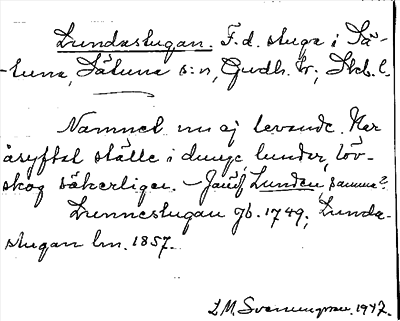 Lundastugan. F.d. stuga i Sä-
-tuna, Sätuna s:n, Gudh. hr; Skb. l.
Namnet nu ej levande. Har
åsyftat ställe i dunge, lunder, löv-
skog säkerligen. - Jämf Lunden, samma?
Lunnestugan gb. 1749; Lunda-
stugan hm. 1857.
L.M. Svennungsson. 1947.